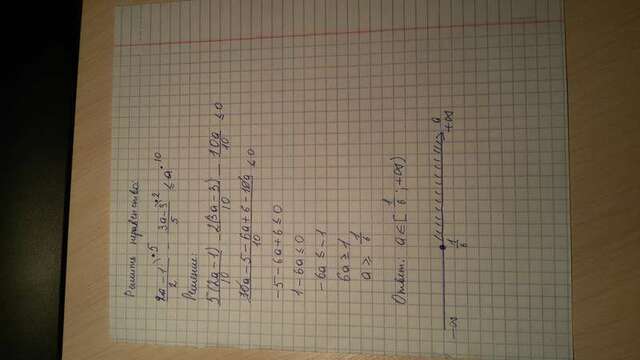 Решить неравенство.
(2a-1)/2 ·5 - (3a-3)/5 ·2 ≤ a ·10
Решение.
5(2a-1)/10 - 2(3a-3)/10 - 10a/10 ≤ 0
(10a-5-6a+6-10a)/10 ≤ 0
-5-6a+6≤0
1-6a≤0
-6a≤-1
6a≥1
a≥1/6
Ответ. a∈[1/6;+∞)
-∞ 1/6 a +∞